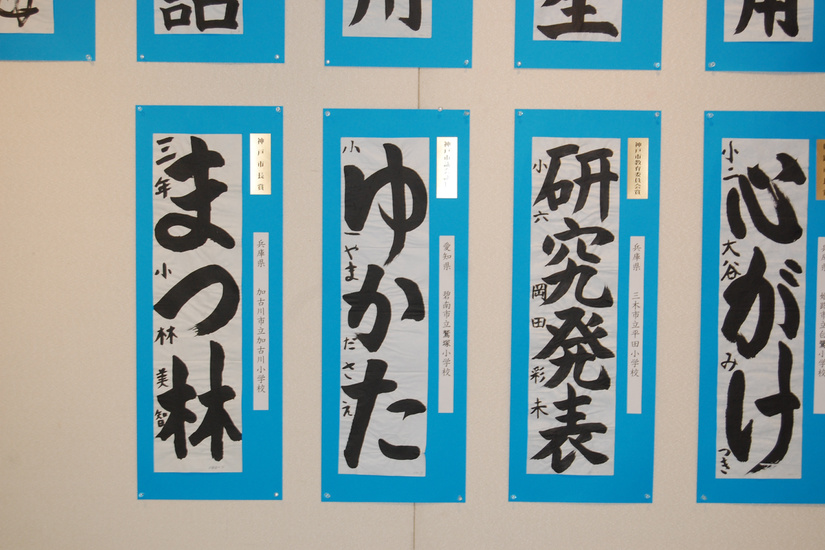 詔
川
生
用
まつ林
三年
小林美智
神戸市長賞
兵庫県 加古川市立加古川小学校
ゆかた
小一
やまださえ
愛知県 碧南市立鷲塚小学校
研究発表
小六
岡田彩未
神戸市教育委員会賞
兵庫県 三木市立平田小学校
心がけ
小二
大谷みつき